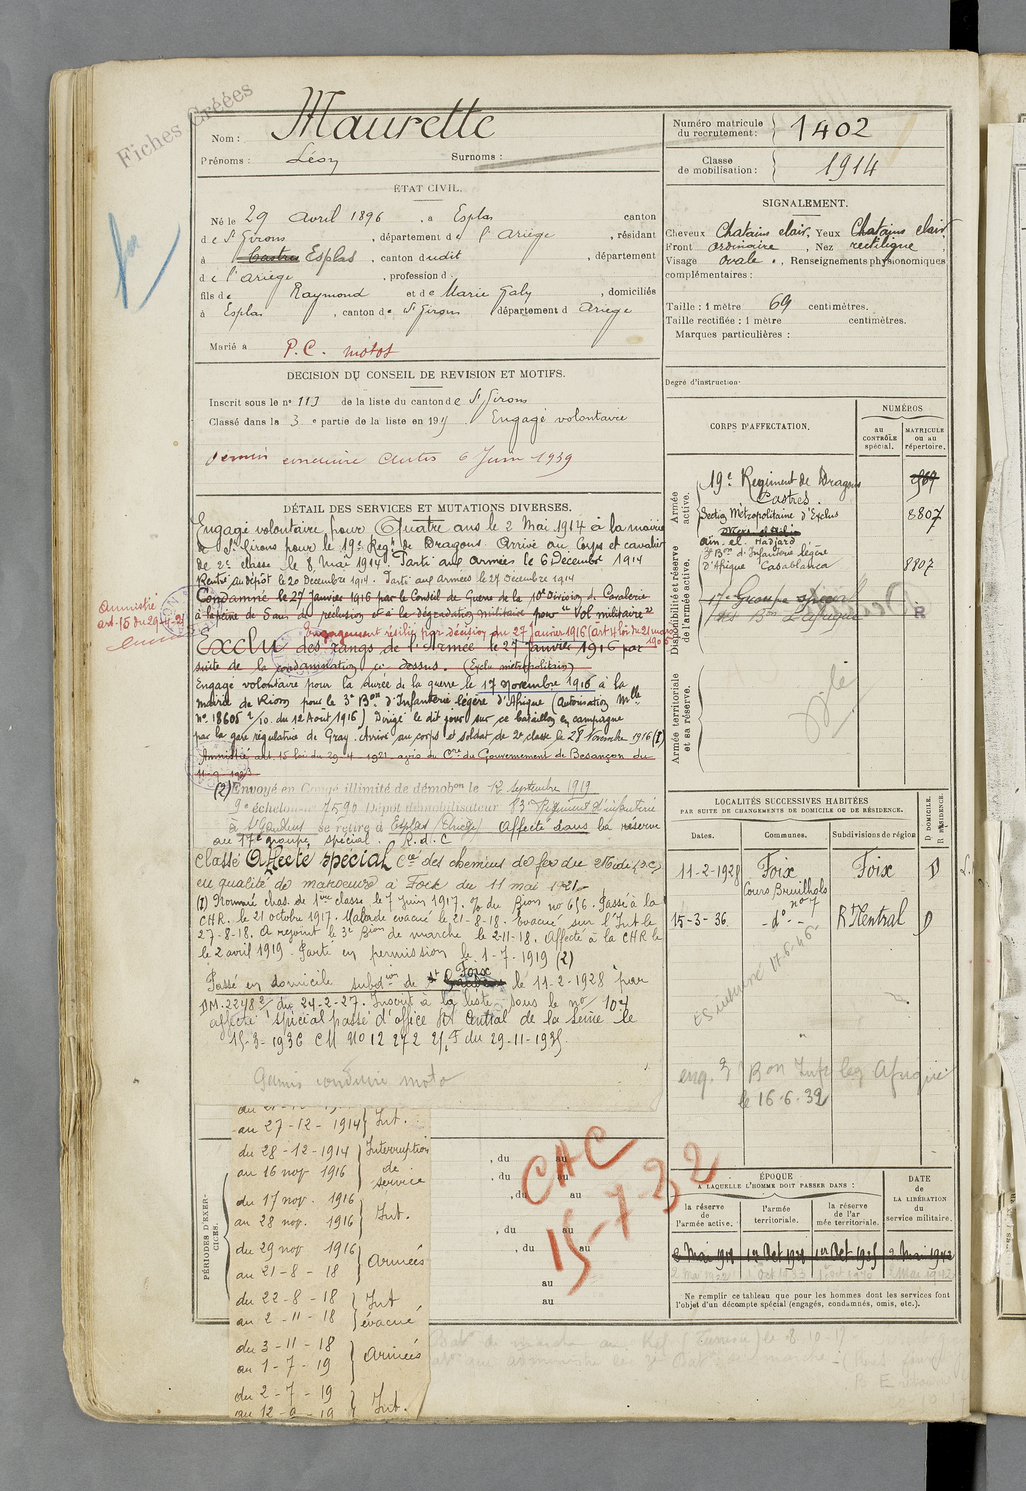 Fiches Créées
Nom : Maurette
Prénoms : Léon Surnoms :
ETAT CIVIL.
Né le 29 Avril 1896 , à Esplas canton
de St Girons , département de l'Ariège , résidant
à Castres Esplas , canton dudit , département
de l'Ariège , profession d
fils de Raymond et de Marie Galy , domiciliés
à Esplas , canton de St Girons département d Ariège
Marié à
P.C. motos
DECISION DU CONSEIL DE REVISION ET MOTIFS.
Inscrit sous le n° 113 de la liste du canton de St Girons
Classé dans la 3 e partie de la liste en 1915 Engagé volontaire
Permis conduire Autos 6 Juin 1939
DÉTAIL DES SERVICES ET MUTATIONS DIVERSES.
Engagé volontaire pour Quatre ans le 2 Mai 1914 à la mairie
de St Girons pour le 19e Regt de Dragons. Arrivé au Corps et cavalier
de 2e classe le 8 mai 1914. Parti aux armées le 6 Décembre 1914
Rentré au Dépôt le 20 Decembre 1914. Parti aux Armées le 27 Decembre 1914
Condamné le 27 Janvier 1916 par le Conseil de Guerre de la 10e Division de Cavalerie
à la peine de 5 ans de reclusion et à la dégradation militaire pour "Vol militaire"
Amnistié
art. 15 du 29-4-21
Engagement résilié par décision du 27 Janvier 1916 (art 4 loi du 21 mars 1905
Exclu des rangs de l'Armée le 27 Janvier 1916 par
suite de la condamnation ci-dessus. (Exclu métropolitain)
Engagé volontaire pour la durée de la guerre le 17 novembre 1916 à la
mairie de Riom pour le 3e Bon d'Infanterie légère d'Afrique (Autorisation Mlle
no 18605 2/10 du 12 Aout 1916) Dirigé le dit jour sur ce bataillon en campagne
par la gare régulatrice de Gray. Arrivé au corps et soldat de 2e classe le 28 Novembre 1916 (1)
Amnistié art. 15 loi du 29-4-1921 avis du Cre du Gouvernement de Besançon du
11-9-1923
(2) Envoyé en Congé illimité de démobon le 12 septembre 1919
9e échelon no 7590 Dépôt démobilisateur 83e Régiment d'infanterie
à St Gaudens se retire à Esplas (Ariège) Affecté dans la réserve
au 17e groupe spécial. R.d.C
classé Affecté spécial Cie des chemins de fer du Midi (S.C)
en qualité de manoeuvre à Foix du 11 mai 1921
(1) Nommé chas. de 1ère classe le 7 juin 1917. O/ du Bion no 656. Passé à la
CHR. le 21 octobre 1917. Malade évacué le 21-8-18. Evacué sur l'Int le
27-8-18. A rejoint le 3e Bion de marche le 2-11-18. Affecté à la CHR le
le 2 avril 1919. Parti en permission le 1-7-1919 (2)
Passé en domicile subdon de Foix le 11-2-1928 par
DM. 22482 du 24-2-27. Inscrit à la liste sous le no 104
affecté spécial passé d'office Rt Central de la Seine le
15-3-1936 CM No 12 272 2/1 F du 29-11-1935
Permis conduire moto
au 27-12-1914 } Int.
du 28-12-1914 } Interruption
au 16 nov 1916 de service
du 17 nov. 1916
au 28 nov. 1916 } Int.
du 29 nov 1916
au 21-8-18 } Armées
du 22-8-18 } Int
au 2-11-18 évacué
du 3-11-18
au 1-7-19 } Armées
du 2-7-19 } Int.
au 12-9-19
PÉRIODES D'EXERCICES.
, du au
, du au
, du au
, du au
, du au
au
au
CAC
15-7-32
Numéro matricule
du recrutement : 1402
Classe
de mobilisation : 1914
SIGNALEMENT.
Cheveux Chatains clair, Yeux Chatains clair,
Front ordinaire , Nez rectiligne ,
Visage ovale . , Renseignements physionomiques
complémentaires :
Taille : 1 mètre 69 centimètres.
Taille rectifiée : 1 mètre centimètres.
Marques particulières :
Degré d'instruction
CORPS D'AFFECTATION.
NUMÉROS
AU CONTRÔLE spécial.
MATRICULE ou au répertoire.
Armée active.
19e Régiment de Dragons
Castres.
Section Métropolitaine d'Exclus 8807
Ain-el-Hadjard
3e Bon d'Infanterie légère
d'Afrique Casablanca 8807
Disponibilité et réserve de l'armée active.
17e Groupe spécial
des Bons d'Afrique R
Armée territoriale et sa réserve.
LOCALITÉS SUCCESSIVES HABITÉES
PAR SUITE DE CHANGEMENTS DE DOMICILE OU DE RÉSIDENCE.
Dates. Communes. Subdivisions de région D DOMICILE. R RÉSIDENCE.
11-2-1928 Foix Foix D
Cours Bruilhols no 7
15-3-36 -do- Rt Central D
17-6-46
eng. 3e Bon Inft leg Afrique
le 16-6-32
ÉPOQUE
A LAQUELLE L'HOMME DOIT PASSER DANS :
la réserve de l'armée active.
l'armée territoriale.
la réserve de l'armée territoriale.
DATE de LA LIBÉRATION du service militaire.
Ne remplir ce tableau que pour les hommes dont les services font
l'objet d'un décompte spécial (engagés, condamnés, omis, etc.).